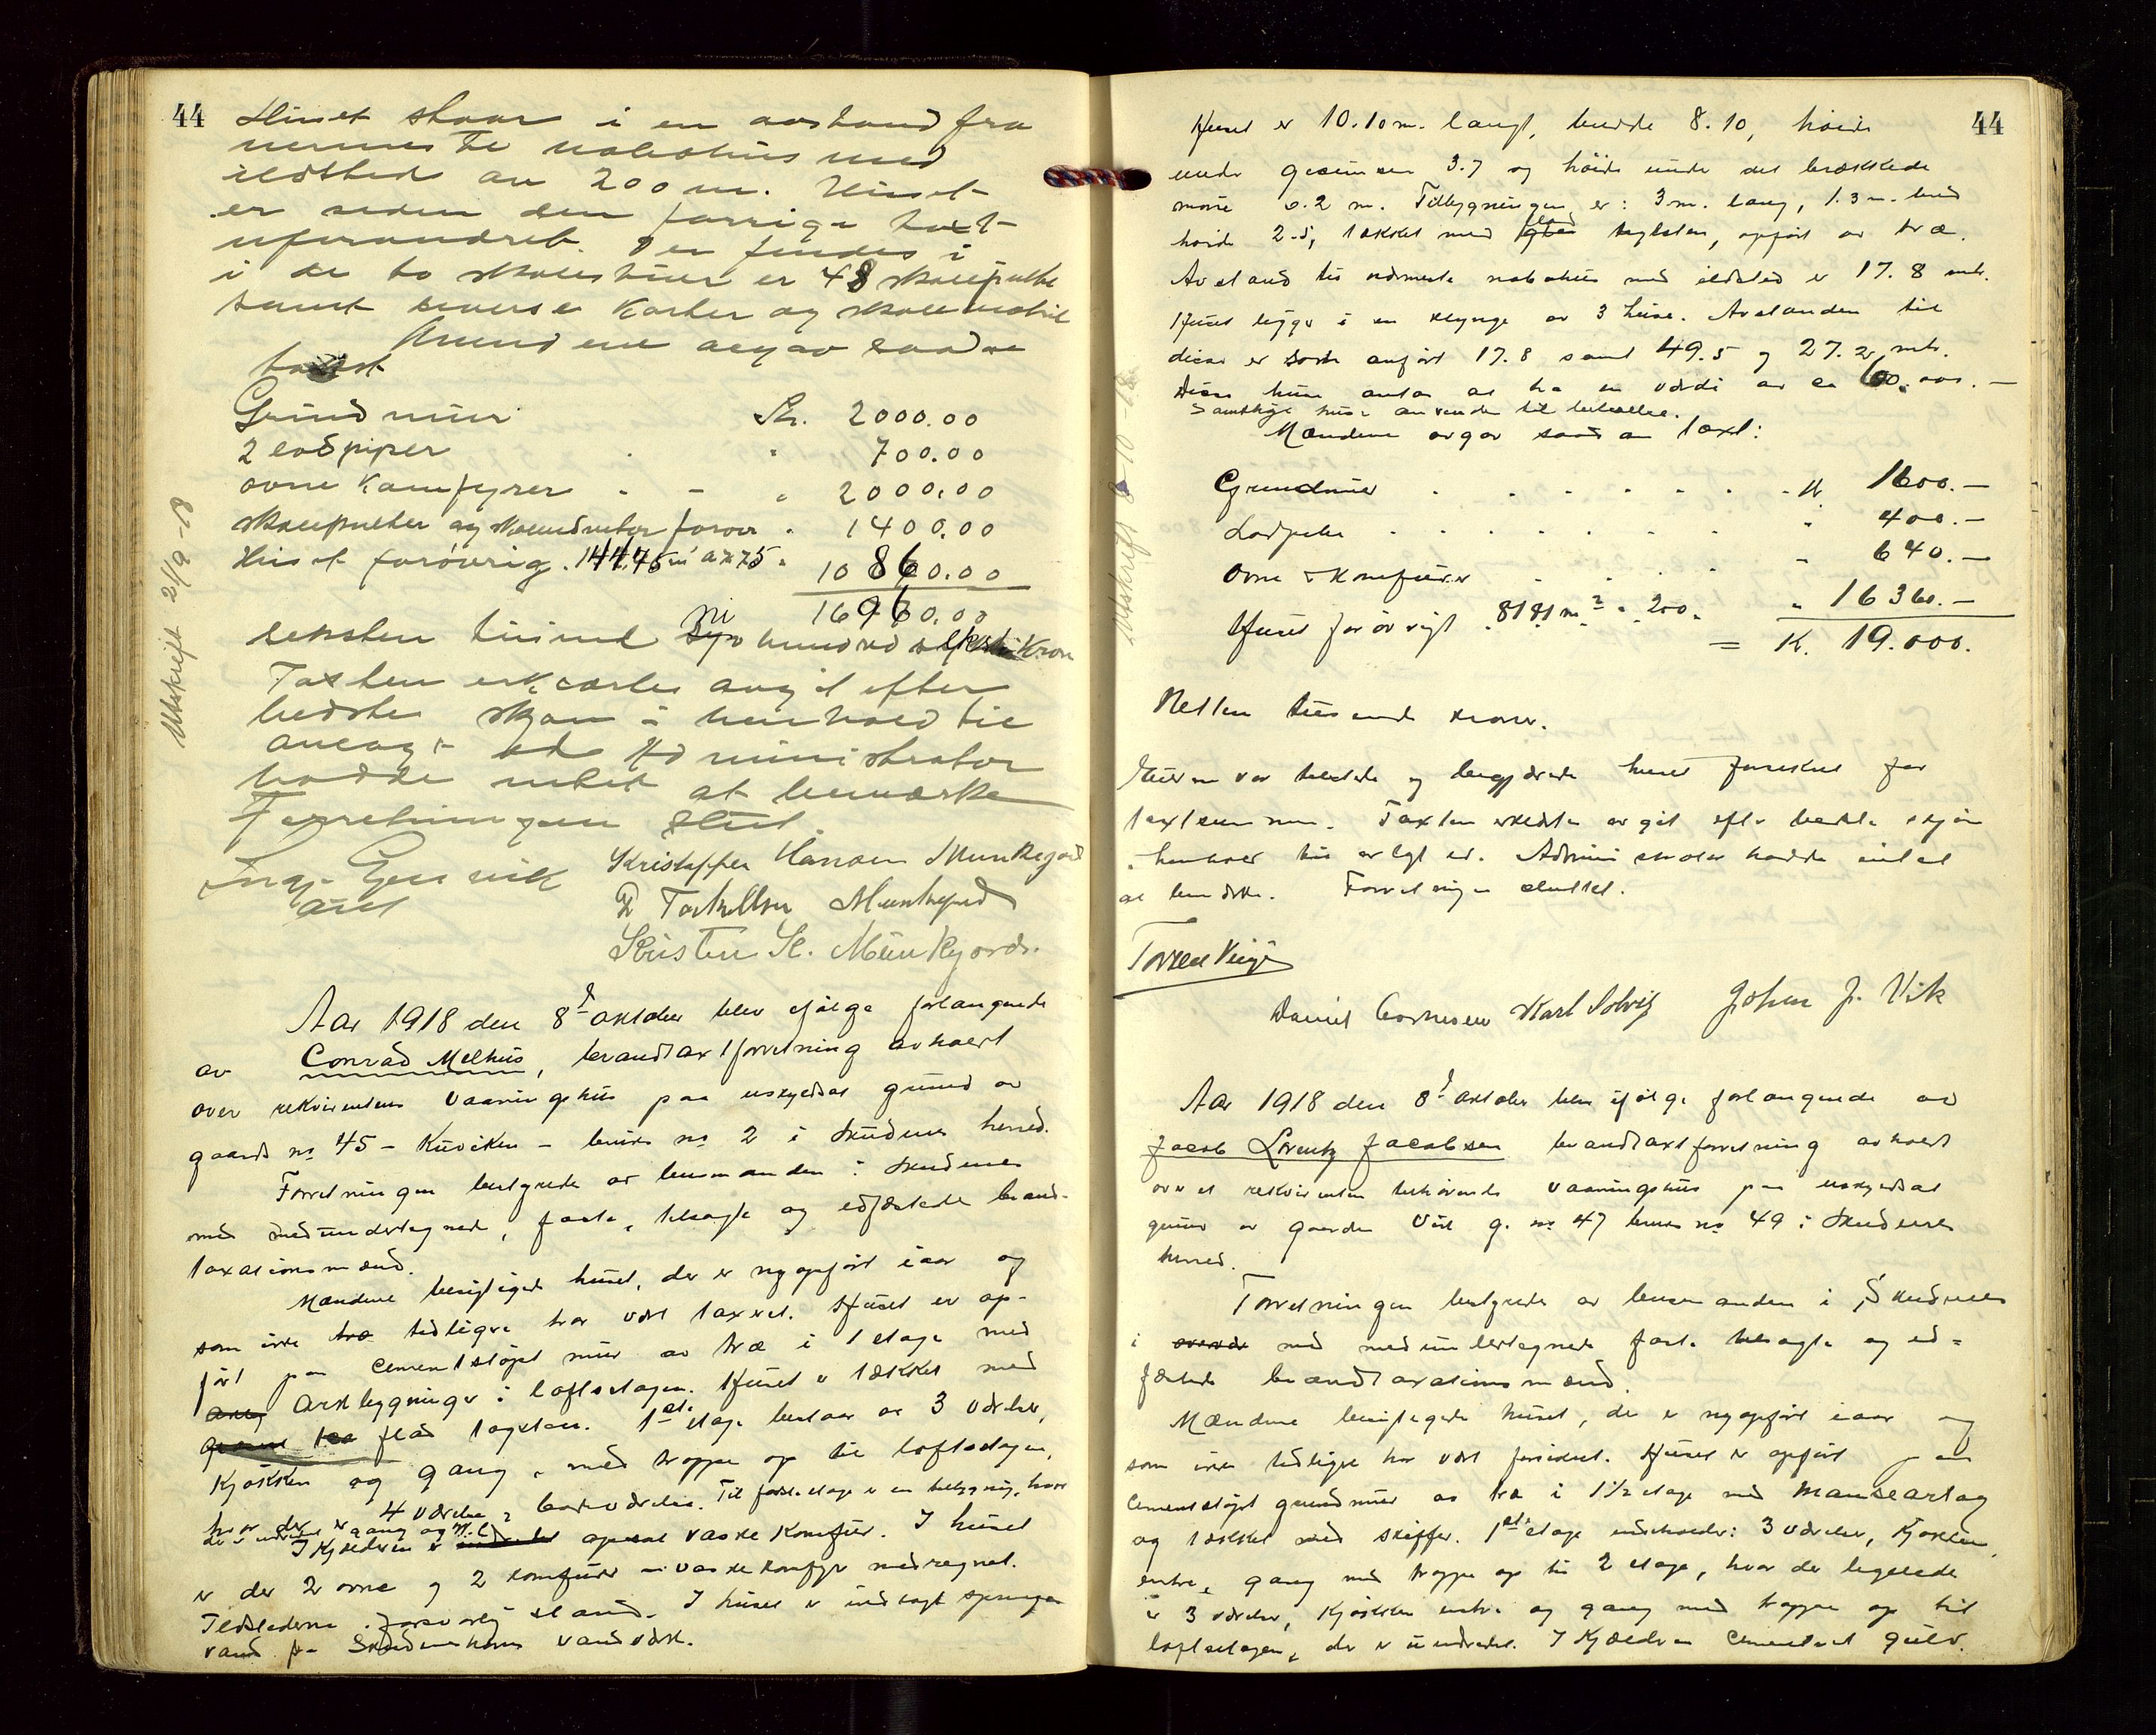 44
Huset staar i en avstand fra
nermeste nabohus med
ildsted av 200 m. Huset
er siden den forrige takst
uforandret. Der findes i
i de to skolestuer er 48 skolepulte
samt diverse karter og skolemateriel
Mændene avgav saadan
takst
Grundmur Kr. 2000.00
2 lodpiper " 700.00
ovne Komfyrer . - " 2000.00
skolepulter og skoleinventar forøvr " 1400.00
Huset forøvrig . 144.75 m² a 75 " 10860.00
16960.00
seksten tusind ni hundred seksti Kron
Taxten erklærtes avgit efter
bedste skjøn i henhold til
avlagt ed Administrator
hadde intet at bemærke
Forretningen slut.
Kristoffer Hansen Munkejord
Torkellsen Munkejord
Kristen K. Munkejord.
Utskrift 21/9-18
Aar 1918 den 8d oktober blev ifølge forlangende
av Conrad Melhus, brandtaxtforretning avholdt
over rekvirentens vaaningshus paa uskyldsat grund av
gaards no 45 - Kuviken - bruks no 2 i Skudenes herred.
Forretningen bestyredes av lensmanden i Skudenes
med medundertegnede, faste, tilsagte og edfæstede brand-
taxationsmænd.
Mændene besigtiget huset, der er nyopført iaar og
som ikke tidligere har vært taxeret. Huset er op-
ført paa cementstøpt mur av træ i 1 etage med
arkbygninger i loftsetagen. Huset er tækket med
flad taksten. 1ste etage bestaar av 3 værelser,
kjøkken og gang, med trappe op til loftsetagen,
hvor der er 4 værelser. Til første etage er en tilbygning, hvor
der er indredet gang og W.C.
I kjelderen er opsat vaske komfur. I huset
er der 2 ovne og 2 komfurer - vaskekomfyr medregnet.
Ildstederne i forsvarlig stand. I huset er indlagt springen
vand fra Skudeneshavns vandverk.
44
Huset er 10.10 m. langt, bredde 8.10, høide
under gesimsen 3.7 og høide under det brækkede
møne 6.2 m. Tilbygningen er: 3 m. lang, 1.3 m. bred
høide 2.5, tækket med flad taglsten, opført av træ.
Avstand til nærmeste nabohus med ildsted er 17.8 mtr.
Huset ligger i en klynge av 3 huse. Avstanden til
disse er som anført 17.8 samt 49.5 og 27.2 mtr.
Disse huse antas at ha en værdi av ca 60.000.-
Samtlige huse anvendes til beboelse.
Mændene avgav saadan taxt:
Grundmur . . . . . . . K. 1600.-
Lodpipe . . . . . . . " 400.-
Ovne & Komfurer . . . . " 640.-
Huset forøvrigt 81,81 m² a 200. " 16360.-
= K. 19.000.
Nitten tusende kroner.
Eieren var tilstede og begjærede huset forsikret for
taxtsummen. Taxten erklærtes avgit efter bedste skjøn
i henhold til avlagt ed. Administrator hadde intet
at bemærke. Forretningen sluttet.
Daniel Cornesen Karl Solvig Johan J. Vik
Utskrift 8-10-18
Aar 1918 den 8d oktober blev ifølge forlangende av
Jacob Lorentz Jacobsen brandtaxtforretning avholdt
over et rekvirenten tilhørende vaaningshus paa uskyldsat
grund av gaarden Vik g. no 47 bruks no 49 i Skudenes
herred.
Forretningen bestyredes av lensmanden i Skudenes
i med medundertegnede faste tilsagte og ed-
fæstede brandtaxationsmænd.
Mændene besigtigede huset, der er nyopført iaar og
som ikke tidligere har vært forsikret. Huset er opført paa
Cementstøpt grundmur av træ i 1 1/2 etage med Mansartag
og tækket med skiffer. 1ste etage indeholder: 3 værelser, kjøkken,
entre, gang med trappe op til 2 etage, hvor der ligeledes
er 3 værelser, kjøkken entre og gang med trappe op til
loftsetagen, der er uindredet. I Kjælderen Cementert gulv.